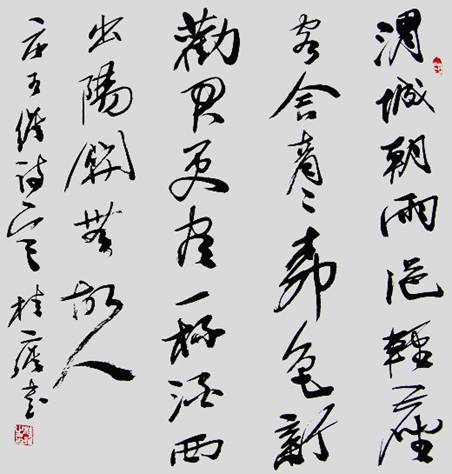 渭城朝雨浥輕塵
客舍青々柳色新
勸君更盡一杯酒西
出陽關無故人
王維詩 桂 書